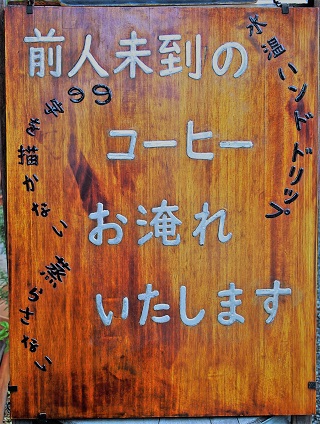 前人未到の
コーヒー
お淹れ
いたします
ハンドドリップ
のの字を描かない
蒸らさない